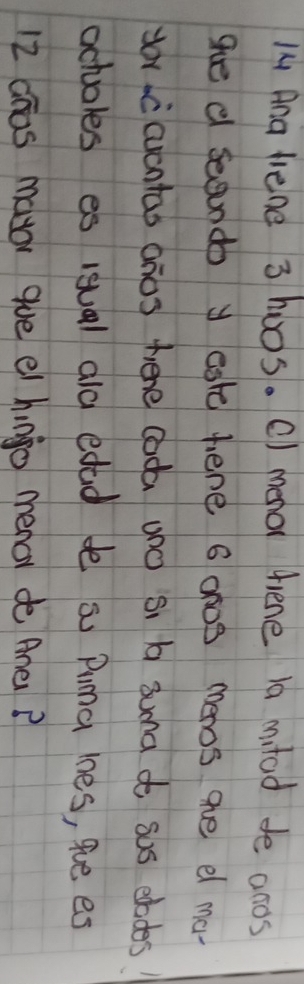 14 Ana tiene 3 hijos. El menor tiene la mitad de años
que el segundo y este tiene 6 años menos que el ma-
yor ¿cuantas años tiene cada uno si la suma de sus edades
actuales es igual ala edad de su prima Ines, que es
12 años mayor que el hinjo menor de Ana?